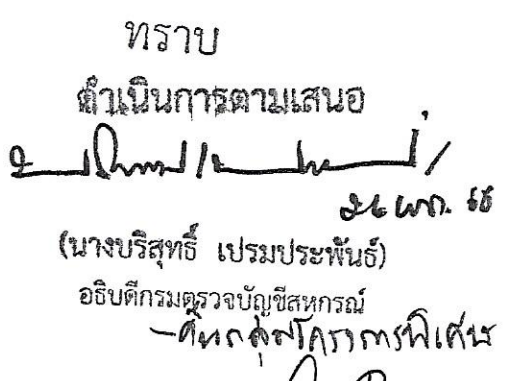 ทราบ
ดำเนินการตามเสนอ
26 พ.ค. 65
(นางบริสุทธิ์ เปรมประพันธ์)
อธิบดีกรมตรวจบัญชีสหกรณ์
โครงการพิเศษ